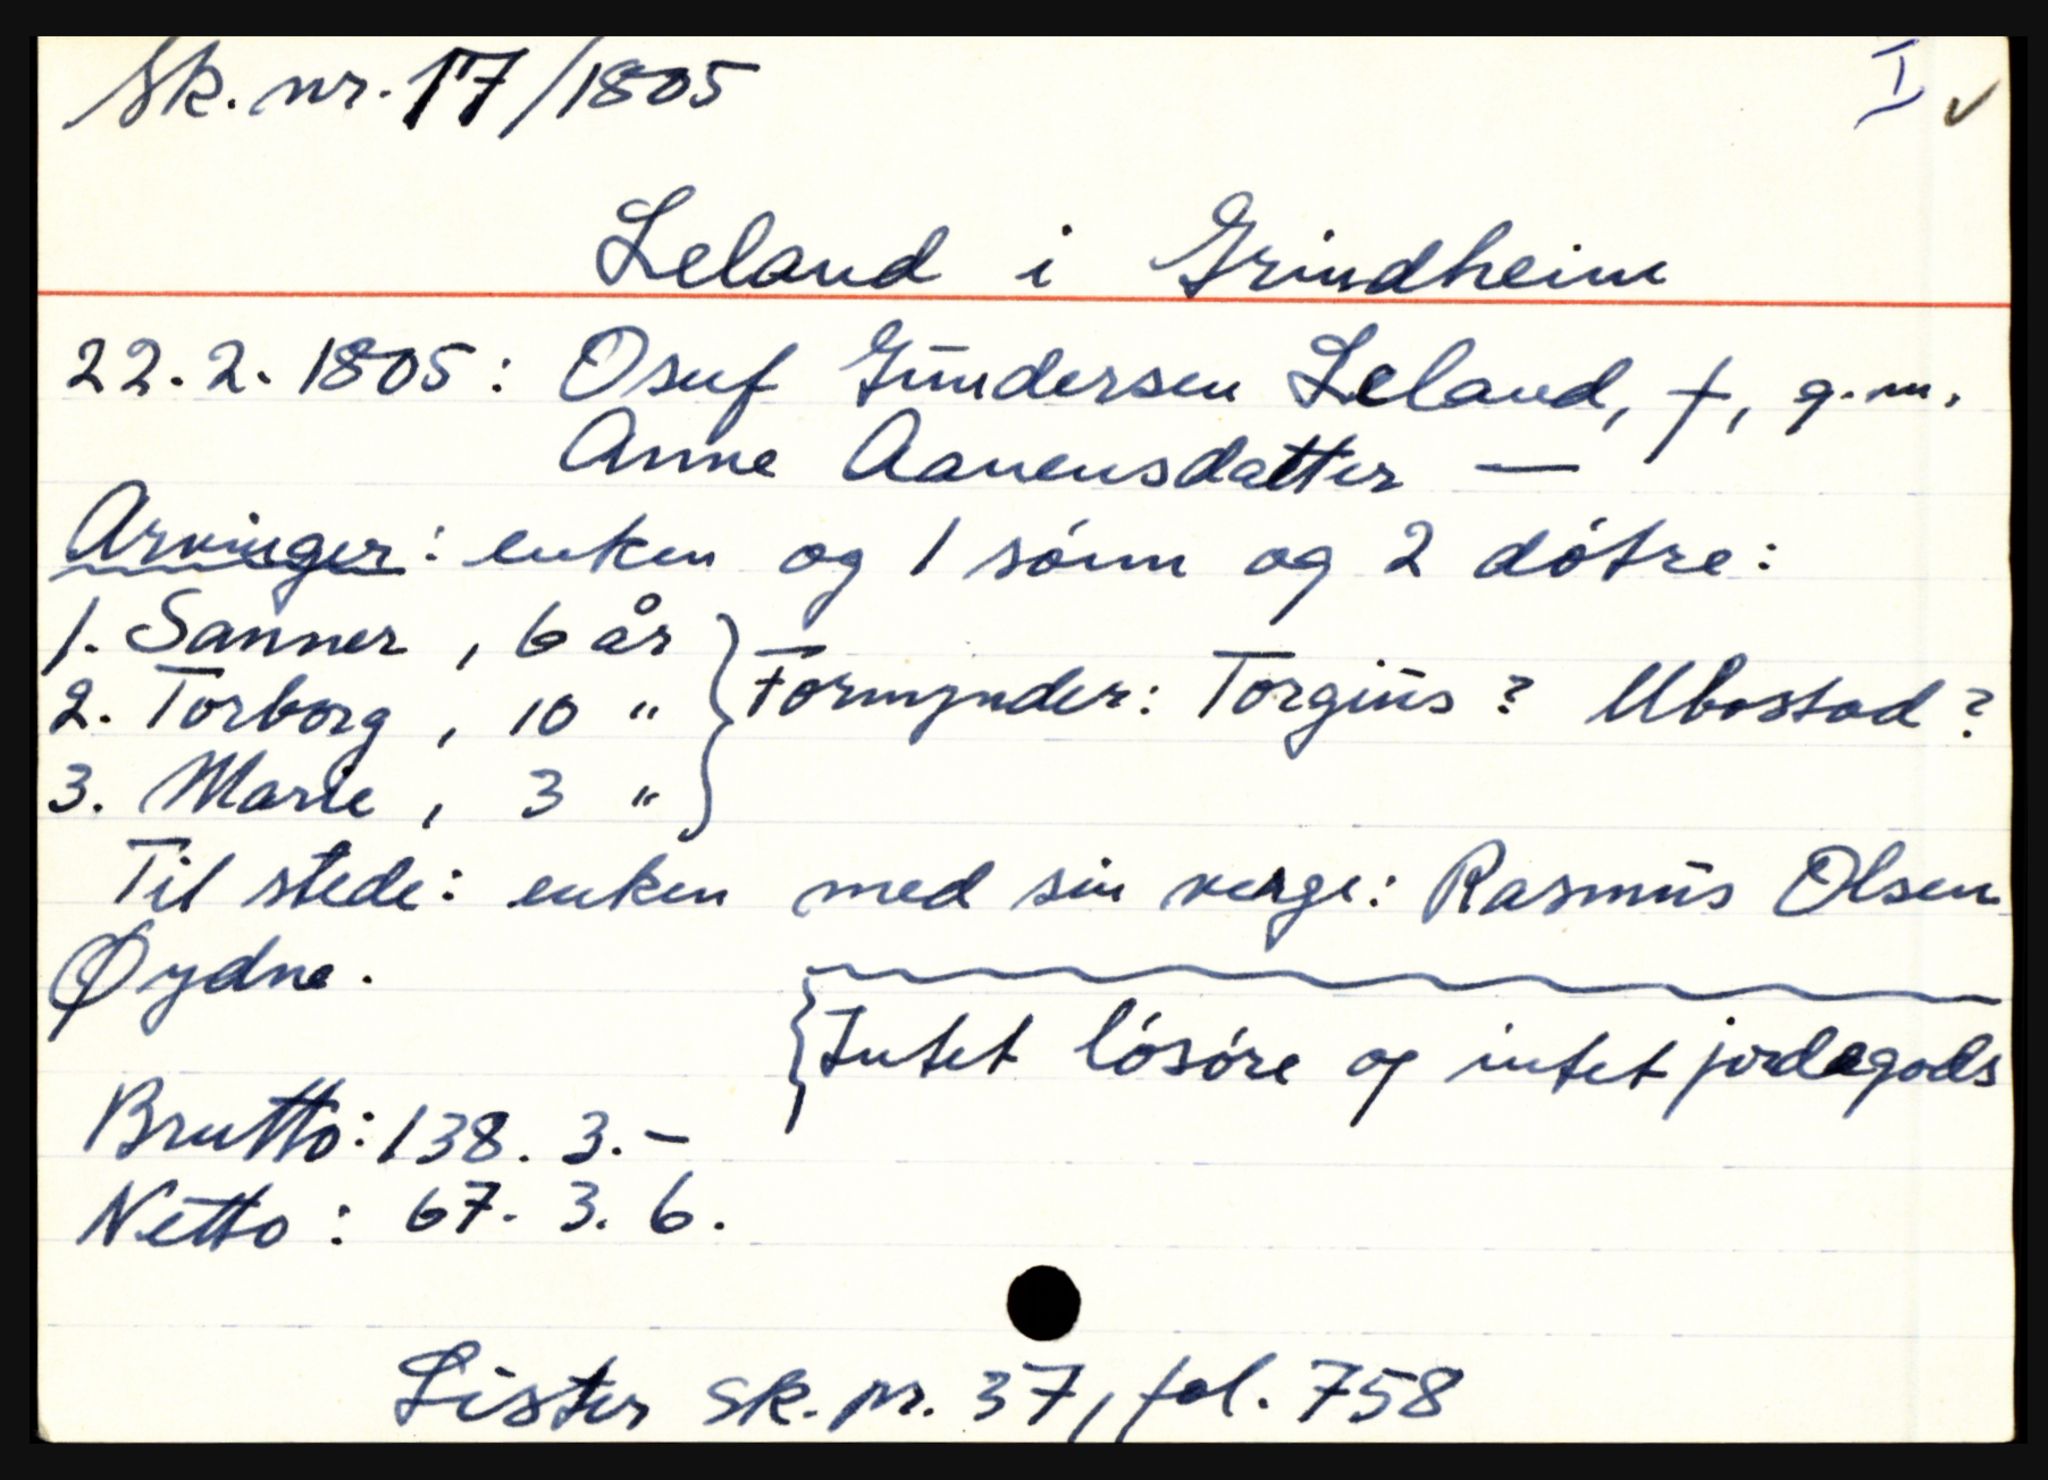 Sk. nr. 17/1805 I ✓
Leland i Grindheim
22.2.1805: Osuf Gundersen Leland, †, g.m.
Anne Aanensdatter —
Arvinger: enken og 1 sónn og 2 dótre:
1. Sanner, 6 år
2. Torborg, 10 " } Formynder: Torgius? Ubostad?
3. Marie, 3 "
Til stede: enken med sin verge: Rasmus Olsen
Øydne.
{ Intet lósóre og intet jordegods
Brutto: 138. 3. –
Netto: 67. 3. 6.
Lister sk. pr. 37, fol. 758